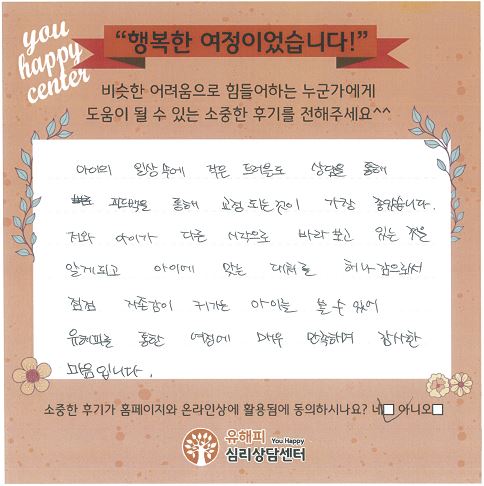 you
happy
center
“행복한 여정이었습니다!”
비슷한 어려움으로 힘들어하는 누군가에게
도움이 될 수 있는 소중한 후기를 전해주세요^^
아이의 일상 속에 작은 트러블도 상담을 통해
피드백을 통해 교정 되는것이 가장 좋았습니다.
저와 아이가 다른 시각으로 바라 보고 있는 것을
알게되고 아이에 맞는 대처를 해나감으로써
점점 자존감이 커가는 아이를 볼 수 있어
유해피를 통한 여정에 매우 만족하며 감사한
마음입니다.
소중한 후기가 홈페이지와 온라인상에 활용됨에 동의하시나요? 네 아니오
유해피 You Happy
심리상담센터